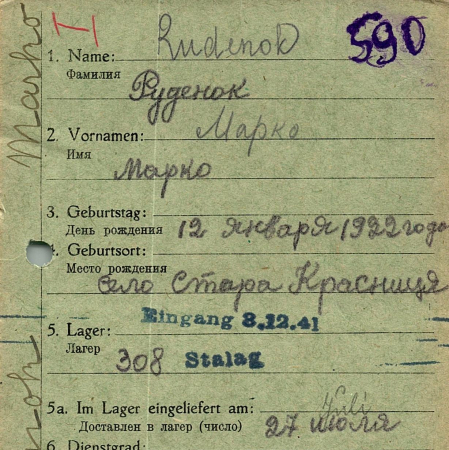 590
Rudenok
1. Name:
Фамилия
Руденок
Марко
2. Vornamen:
Имя
Марко
3. Geburtstag:
День рождения 12 января 1922 года
4. Geburtsort:
Место рождения
село Стара Красниця
Eingang 8.12.41
5. Lager:
Лагер 308 Stalag
Juli
5a. Im Lager eingeliefert am:
Доставлен в лагер (число) 27 июля
6. Dienstgrad:
Marko